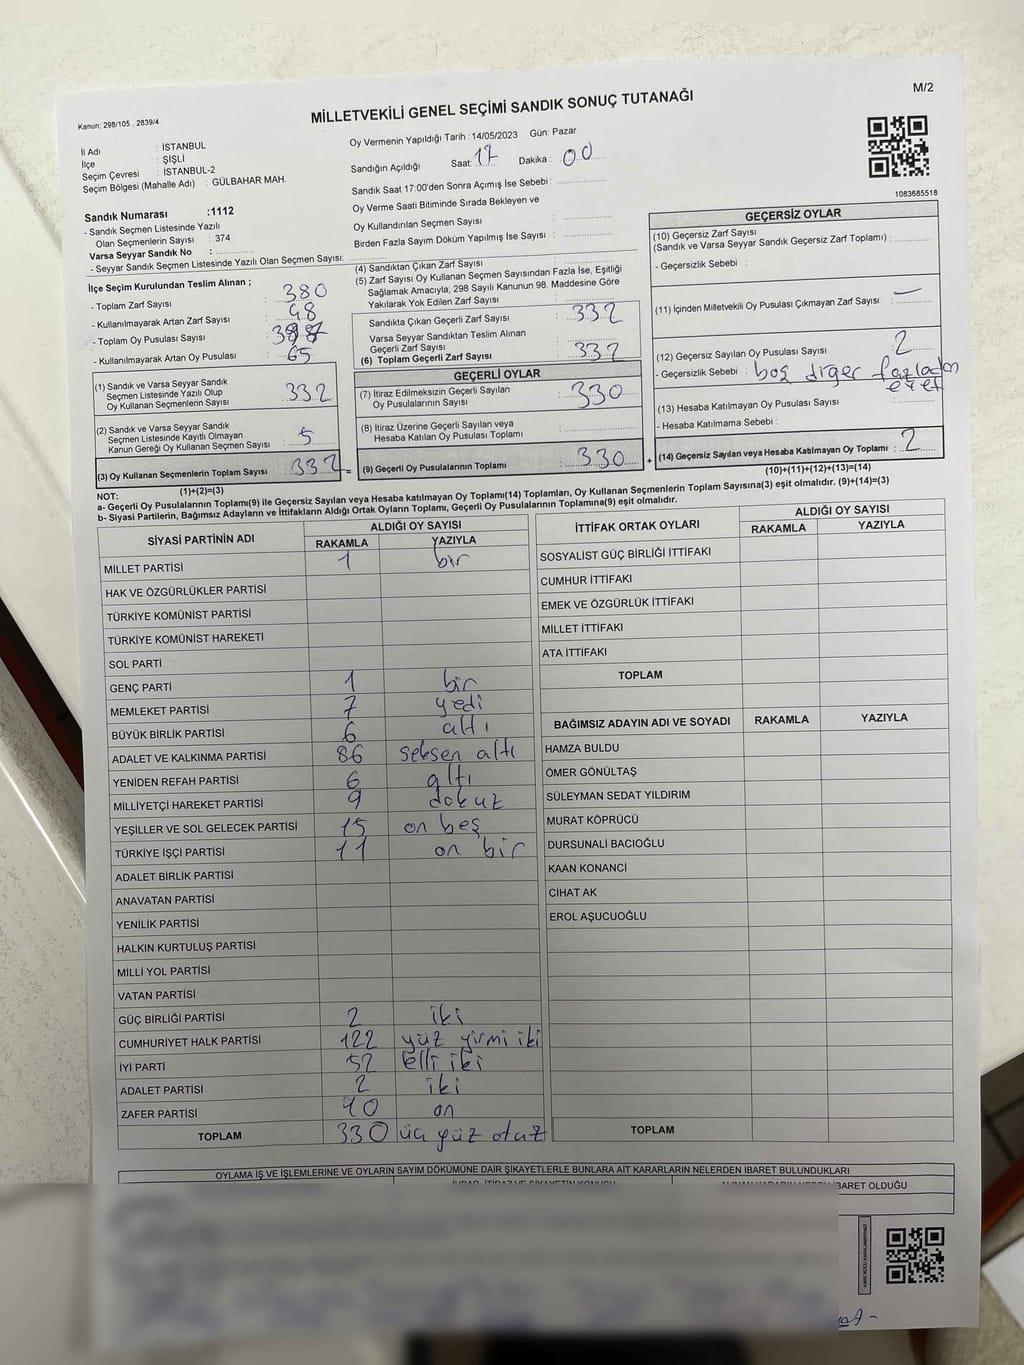 M/2
MİLLETVEKİLİ GENEL SEÇİMİ SANDIK SONUÇ TUTANAĞI
Kanun; 298/105 , 2839/4
İl Adı : İSTANBUL
İlçe : ŞİŞLİ
Seçim Çevresi : İSTANBUL-2
Seçim Bölgesi (Mahalle Adı) : GÜLBAHAR MAH.
Sandık Numarası :1112
- Sandık Seçmen Listesinde Yazılı
Olan Seçmenlerin Sayısı : 374
Varsa Seyyar Sandık No :
- Seyyar Sandık Seçmen Listesinde Yazılı Olan Seçmen Sayısı:
Oy Vermenin Yapıldığı Tarih : 14/05/2023 Gün: Pazar
Sandığın Açıldığı Saat: 17 Dakika : 00
Sandık Saat 17:00'den Sonra Açımış İse Sebebi :
Oy Verme Saati Bitiminde Sırada Bekleyen ve
Oy Kullandırılan Seçmen Sayısı :
Birden Fazla Sayım Döküm Yapılmış İse Sayısı :
1083685518
İlçe Seçim Kurulundan Teslim Alınan ;
- Toplam Zarf Sayısı : 380
- Kullanılmayarak Artan Zarf Sayısı : 48
- Toplam Oy Pusulası Sayısı :
- Kullanılmayarak Artan Oy Pusulası : 65
(1) Sandık ve Varsa Seyyar Sandık
Seçmen Listesinde Yazılı Olup
Oy Kullanan Seçmenlerin Sayısı : 332
(2) Sandık ve Varsa Seyyar Sandık
Seçmen Listesinde Kayıtlı Olmayan
Kanun Gereği Oy Kullanan Seçmen Sayısı : 5
(3) Oy Kullanan Seçmenlerin Toplam Sayısı : 332 =
(1)+(2)=(3)
(4) Sandıktan Çıkan Zarf Sayısı :
(5) Zarf Sayısı Oy Kullanan Seçmen Sayısından Fazla İse, Eşitliği
Sağlamak Amacıyla, 298 Sayılı Kanunun 98. Maddesine Göre
Yakılarak Yok Edilen Zarf Sayısı :
Sandıkta Çıkan Geçerli Zarf Sayısı : 332
Varsa Seyyar Sandıktan Teslim Alınan
Geçerli Zarf Sayısı :
(6) Toplam Geçerli Zarf Sayısı : 332
GEÇERLİ OYLAR
(7) İtiraz Edilmeksizin Geçerli Sayılan
Oy Pusulalarının Sayısı : 330
(8) İtiraz Üzerine Geçerli Sayılan veya
Hesaba Katılan Oy Pusulası Toplamı :
(9) Geçerli Oy Pusulalarının Toplamı : 330 +
GEÇERSİZ OYLAR
(10) Geçersiz Zarf Sayısı
(Sandık ve Varsa Seyyar Sandık Geçersiz Zarf Toplamı) :
- Geçersizlik Sebebi :
(11) İçinden Milletvekili Oy Pusulası Çıkmayan Zarf Sayısı : —
(12) Geçersiz Sayılan Oy Pusulası Sayısı : 2
- Geçersizlik Sebebi : boş diğer fazladan
evet
(13) Hesaba Katılmayan Oy Pusulası Sayısı :
- Hesaba Katılmama Sebebi :
(14) Geçersiz Sayılan veya Hesaba Katılmayan Oy Toplamı : 2
(10)+(11)+(12)+(13)=(14)
NOT:
a- Geçerli Oy Pusulalarının Toplamı(9) ile Geçersiz Sayılan veya Hesaba katılmayan Oy Toplamı(14) Toplamları, Oy Kullanan Seçmenlerin Toplam Sayısına(3) eşit olmalıdır. (9)+(14)=(3)
b- Siyasi Partilerin, Bağımsız Adayların ve İttifakların Aldığı Ortak Oyların Toplamı, Geçerli Oy Pusulalarının Toplamına(9) eşit olmalıdır.
SİYASİ PARTİNİN ADI ALDIĞI OY SAYISI
RAKAMLA YAZIYLA
MİLLET PARTİSİ 1 bir
HAK VE ÖZGÜRLÜKLER PARTİSİ
TÜRKİYE KOMÜNİST PARTİSİ
TÜRKİYE KOMÜNİST HAREKETİ
SOL PARTİ
GENÇ PARTİ 1 bir
MEMLEKET PARTİSİ 7 yedi
BÜYÜK BİRLİK PARTİSİ 6 altı
ADALET VE KALKINMA PARTİSİ 86 seksen altı
YENİDEN REFAH PARTİSİ 6 altı
MİLLİYETÇİ HAREKET PARTİSİ 9 dokuz
YEŞİLLER VE SOL GELECEK PARTİSİ 15 on beş
TÜRKİYE İŞÇİ PARTİSİ 11 on bir
ADALET BİRLİK PARTİSİ
ANAVATAN PARTİSİ
YENİLİK PARTİSİ
HALKIN KURTULUŞ PARTİSİ
MİLLİ YOL PARTİSİ
VATAN PARTİSİ
GÜÇ BİRLİĞİ PARTİSİ 2 iki
CUMHURİYET HALK PARTİSİ 122 yüz yirmi iki
İYİ PARTİ 52 elli iki
ADALET PARTİSİ 2 iki
ZAFER PARTİSİ 10 on
TOPLAM 330 üç yüz otuz
İTTİFAK ORTAK OYLARI ALDIĞI OY SAYISI
RAKAMLA YAZIYLA
SOSYALİST GÜÇ BİRLİĞİ İTTİFAKI
CUMHUR İTTİFAKI
EMEK VE ÖZGÜRLÜK İTTİFAKI
MİLLET İTTİFAKI
ATA İTTİFAKI
TOPLAM
BAĞIMSIZ ADAYIN ADI VE SOYADI RAKAMLA YAZIYLA
HAMZA BULDU
ÖMER GÖNÜLTAŞ
SÜLEYMAN SEDAT YILDIRIM
MURAT KÖPRÜCÜ
DURSUNALİ BACIOĞLU
KAAN KONANCİ
CİHAT AK
EROL AŞUCUOĞLU
TOPLAM
OYLAMA İŞ VE İŞLEMLERİNE VE OYLARIN SAYIM DÖKÜMÜNE DAİR ŞİKAYETLERLE BUNLARA AİT KARARLARIN NELERDEN İBARET BULUNDUKLARI
İBARET OLDUĞU